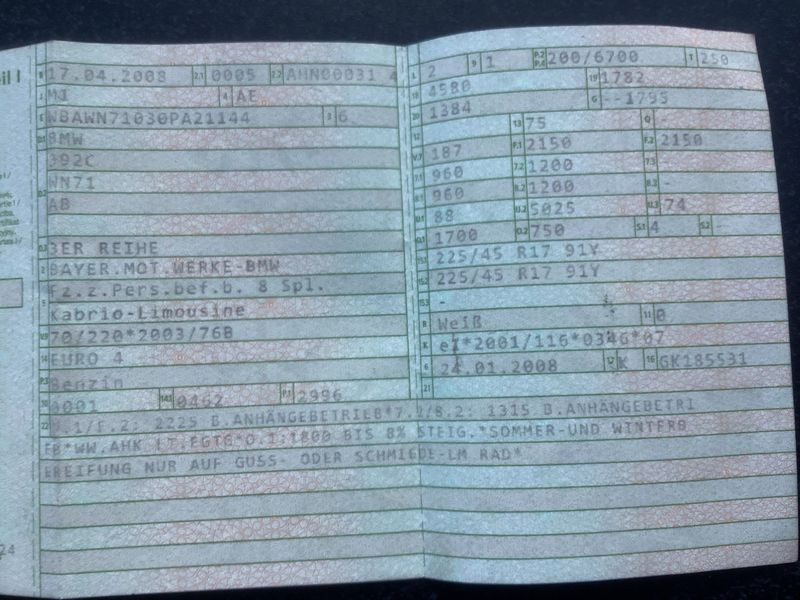 B 17.04.2008 2.1 0005 2.2 AHN00031 4
J M1 4 AE
E WBAWN71030PA21144 3 6
D.1 BMW
392C
D.2 WN71
AB
D.3 3ER REIHE
2 BAYER.MOT.WERKE-BMW
5 Fz.z.Pers.bef.b. 8 Spl.
Kabrio-Limousine
V.9 70/220*2003/76B
14 EURO 4
P.3 Benzin
10 0001 14.1 0462 P.1 2996
L 2 9 1 P.2 P.4 200/6700 T 250
18 4580 19 1782
20 1384 G --1795
12 13 75 Q -
V.7 187 F.1 2150 F.2 2150
7.1 960 7.2 1200 7.3 -
8.1 960 8.2 1200 8.3 -
U.1 88 U.2 5025 U.3 74
O.1 1700 O.2 750 S.1 4 S.2 -
15.1 225/45 R17 91Y
15.2 225/45 R17 91Y
15.3 -
R Weiß 11 0
K e1*2001/116*0346*07
6 24.01.2008 17 K 16 GK185531
21
22 F.1/F.2: 2225 B.ANHÄNGEBETRIEB*7.2/8.2: 1315 B.ANHÄNGEBETRI
EB*WW.AHK LT.EGTG*O.1:1800 BIS 8% STEIG.*SOMMER-UND WINTERB
EREIFUNG NUR AUF GUSS- ODER SCHMIEDE-LM RAD*
24